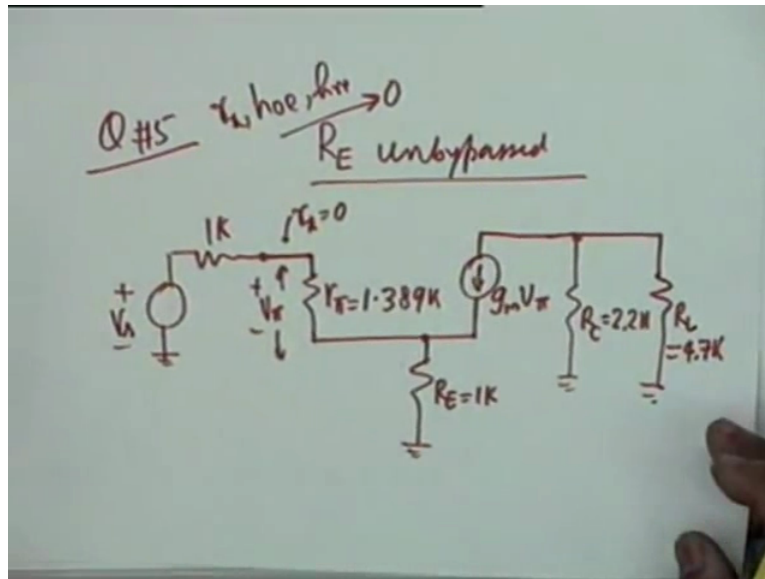 Q #5 rₓ, hoe, hre → 0
RE unbypassed
1K
rₓ=0
+
Vs
-
+
Vπ
-
rπ=1.389K
gmVπ
RC=2.2K
RL
=4.7K
RE=1K